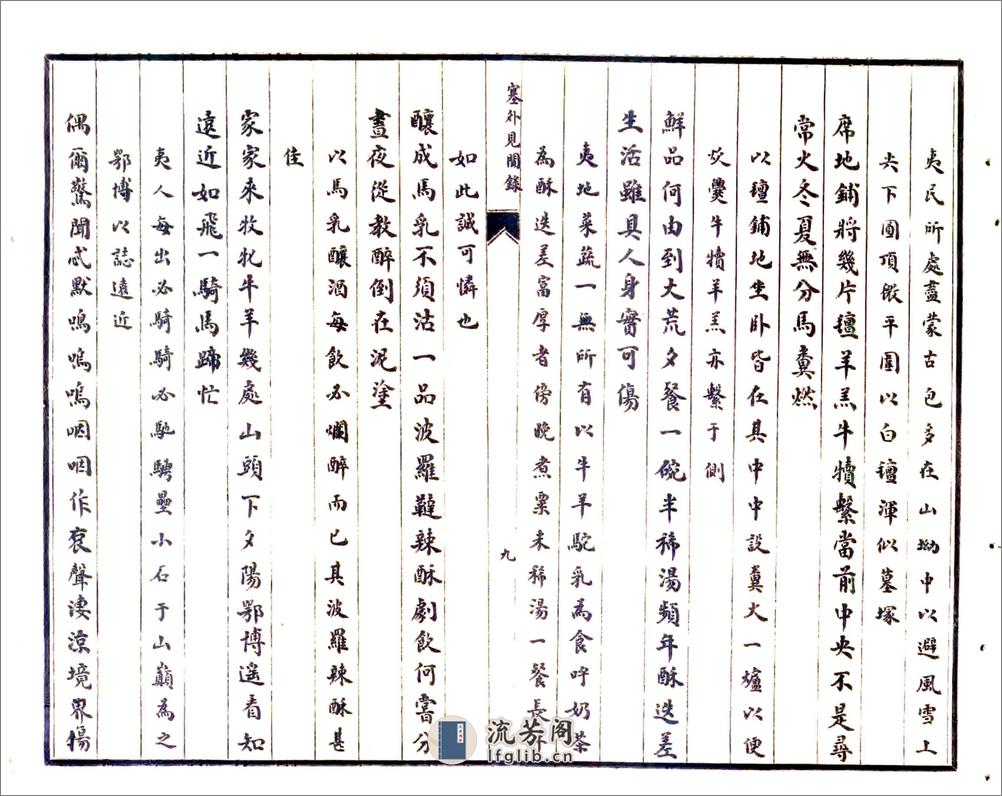 夷民所處盡蒙古包多在山坳中以避風雪上
尖下圓頂微平圍以白氊渾似墓塚
席地鋪將幾片氊羊羔牛犢繫當前中央不是尋
常火冬夏無分馬糞燃
以氊鋪地坐卧皆在其中中設糞火一爐以便
炙爨牛犢羊羔亦繫于側
鮮品何由到大荒夕餐一碗半稀湯頻年酥迭差
生活雖具人身實可傷
夷地菜蔬一無所有以牛羊駝乳為食呼奶茶
為酥迭差富厚者傍晚煮粟米稀湯一餐長年
塞外見聞錄
九
如此誠可憐也
釀成馬乳不須沽一品波羅韃辣酥劇飲何嘗分
晝夜從教醉倒在泥塗
以馬乳釀酒每飲必爛醉而已其波羅辣酥甚
佳
家家来牧牝牛羊幾處山頭下夕陽鄂博遥看知
遠近如飛一騎馬蹄忙
夷人每出必騎騎必馳騁壘小石于山巔為之
鄂博以誌遠近
偶爾驚聞忒默鳴嗚嗚咽咽作哀聲淒涼境界揚
流芳阁
lfglib.cn